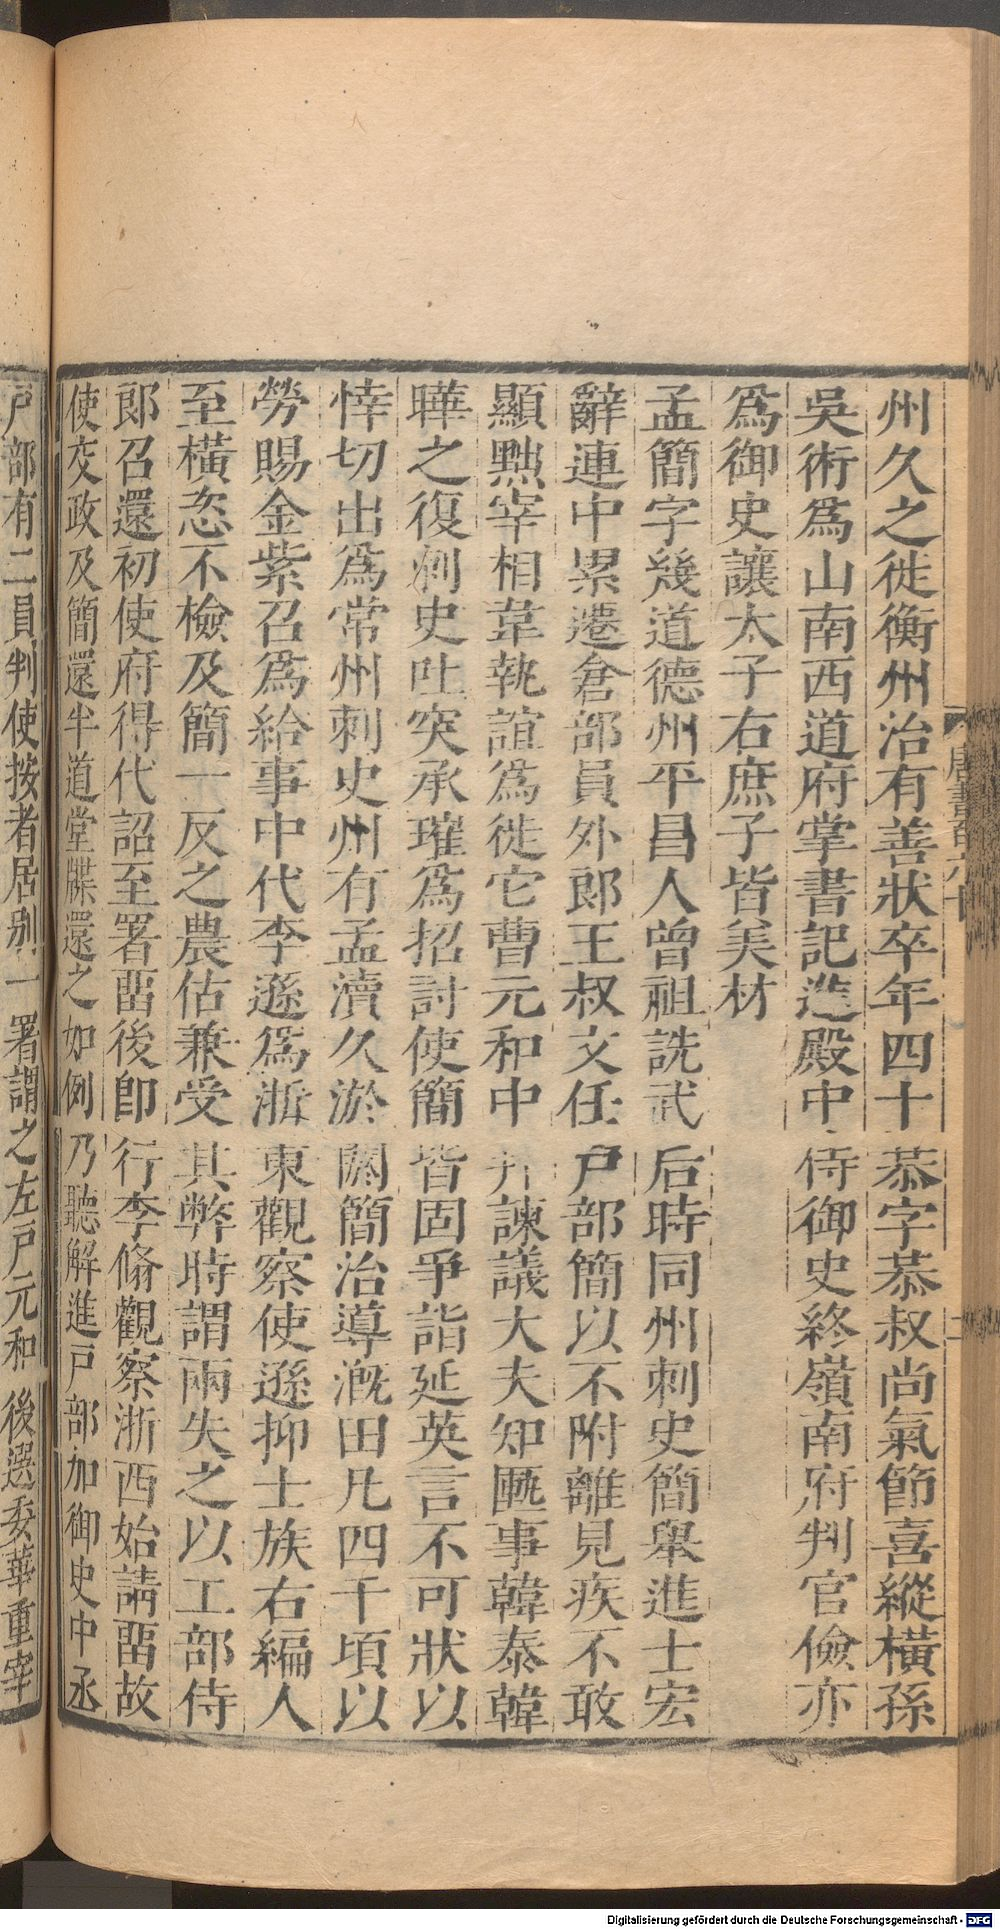 州久之徙衡州治有善狀卒年四十恭字恭叔尚氣節喜縱橫孫
吳術爲山南西道府掌書記進殿中侍御史終嶺南府判官儉亦
爲御史讓太子右庶子皆美材
孟簡字幾道德州平昌人曾祖詵武后時同州刺史簡舉進士宏
辭連中累遷倉部員外郎王叔文任戶部簡以不附離見疾不敢
顯黜宰相韋執誼爲徙它曹元和中拜諫議大夫知匭事韓泰韓
曄之復刺史吐突承璀爲招討使簡皆固爭詣延英言不可狀以
悻切出爲常州刺史州有孟瀆久淤閼簡治導溉田凡四千頃以
勞賜金紫召爲給事中代李遜爲浙東觀察使遜抑士族右編人
至橫恣不檢及簡一反之農估兼受其弊時謂兩失之以工部侍
郎召還初使府得代詔至署畱後卽行李脩觀察浙西始請畱故
使交政及簡還半道堂牒還之如例乃聽解進戸部加御史中丞
戸部有二員判使按者居别一署謂之左戸元和後選委華重宰
唐書百六十
二
Digitalisierung gefördert durch die Deutsche Forschungsgemeinschaft - DFG